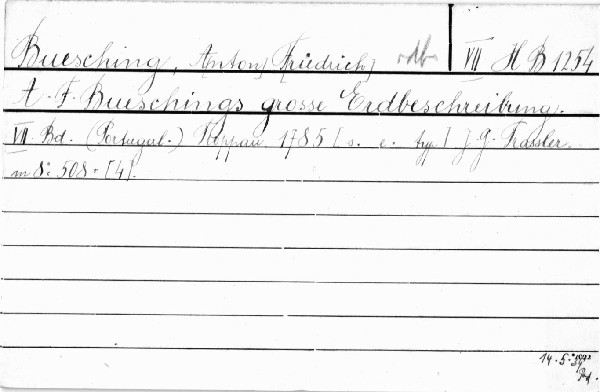 Buesching, Anton, Friedrich, VII H B 1254
A. F. Bueschings grosse Erdbeschreibung.
VII. Bd. (Portugal.) Troppau 1785 [s. e. typ] J. G. Trassler.
m 8° 508 + [4].
14. 5.